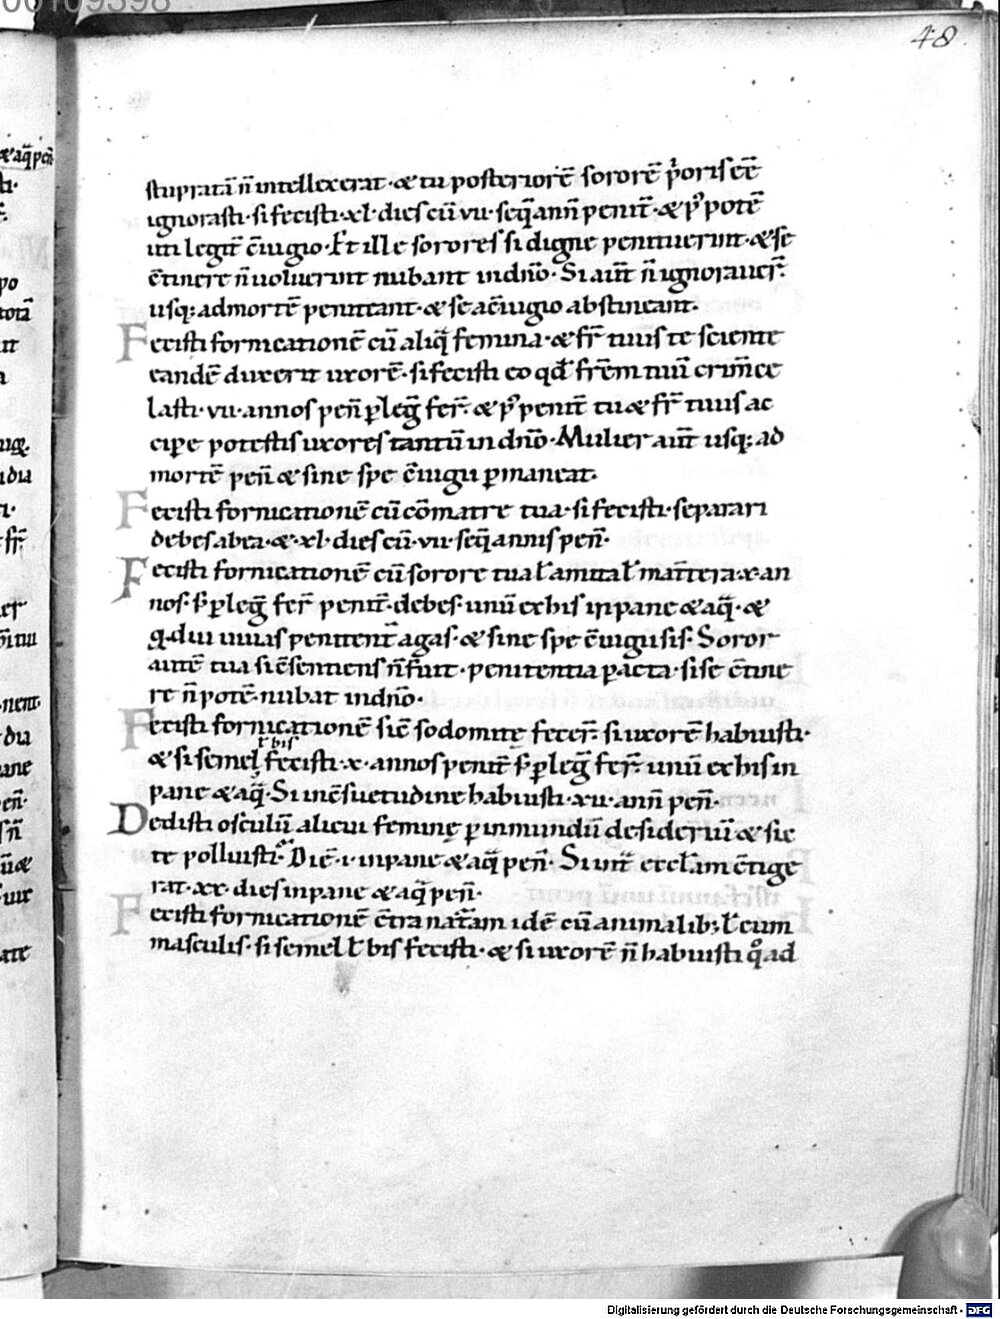 48
stupratā n̄ intellexerat · & tu posteriorē sororē p̓oris eē
ignorasti · si fecisti · xl · dies cū · vii · seq̄ ann̄ penit̄ · & p̓ potē
uti legit̄ c̄iugio · Et ille sorores si digne penituerint · & se
c̄tinere n̄ uoluerint nubant in dn̄o · Si aūt n̄ ignorauer̄ ·
usq; ad mortē peniteant · & se a c̄iugio abstineant ·
Fecisti fornicationē cū aliq̄ femina · & fr̄ tuus te sciente
eandē duxerit uxorē · si fecisti eo qd̄ frēm tuū crim̄ ce
lasti · vii · annos pen̄ p̱ leḡ fer̄ · & p̓ penit̄ tu & fr̄ tuus ac
cipe potestis uxores tantū in dn̄o · Mulier aūt usq; ad
mortē pen̄ & sine spe c̄iugii p̱maneat ·
Fecisti fornicationē cū cōmatre tua · si fecisti · separari
debes ab ea · & · xl · dies cū · vii · seq̄ annis pen̄ ·
Fecisti fornicationē cū sorore tua ł amita ł mat̄tera · x · an
nos · s̄ p̱ leḡ fer̄ penit̄ · debes · unū ex his in pane & aq̄ · &
q̱ · diu uiuas penitent̄ agas · & sine spe c̄iugii sis · Soror
autē tua si c̄sentiens n̄ fuit · penitentia p̱acta · si se c̄tine
re n̄ potē · nubat in dn̄o ·
Fecisti fornicationē sic̄ sodomitę fecer̄ · si uxorē habuisti ·
ł bis
& si semel fecisti · x · annos penit̄ s̄ p̱ leḡ fer̄ · unū ex his in
pane & aq̄ · Si in c̄suetudine habuisti · xii · ann̄ pen̄ ·
Dedisti osculū alicui feminę p̱ inmundū desideriū & sic
te polluisti · Diē · i · in pane & aq̄ pen̄ · Si int̄ eccłam c̄tige
rat · xx · dies in pane & aq̄ pen̄ ·
Fecisti fornicationē c̄tra nat̄am idē cū animalib; ł cum
masculis · si semel ł bis fecisti · & si uxorē n̄ habuisti q̊ ad
Digitalisierung gefördert durch die Deutsche Forschungsgemeinschaft - DFG